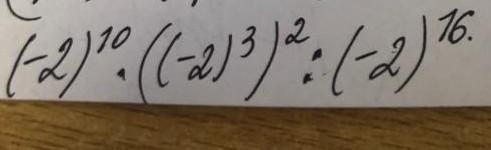 (-2)¹⁰ · ((-2)³)² : (-2)¹⁶.